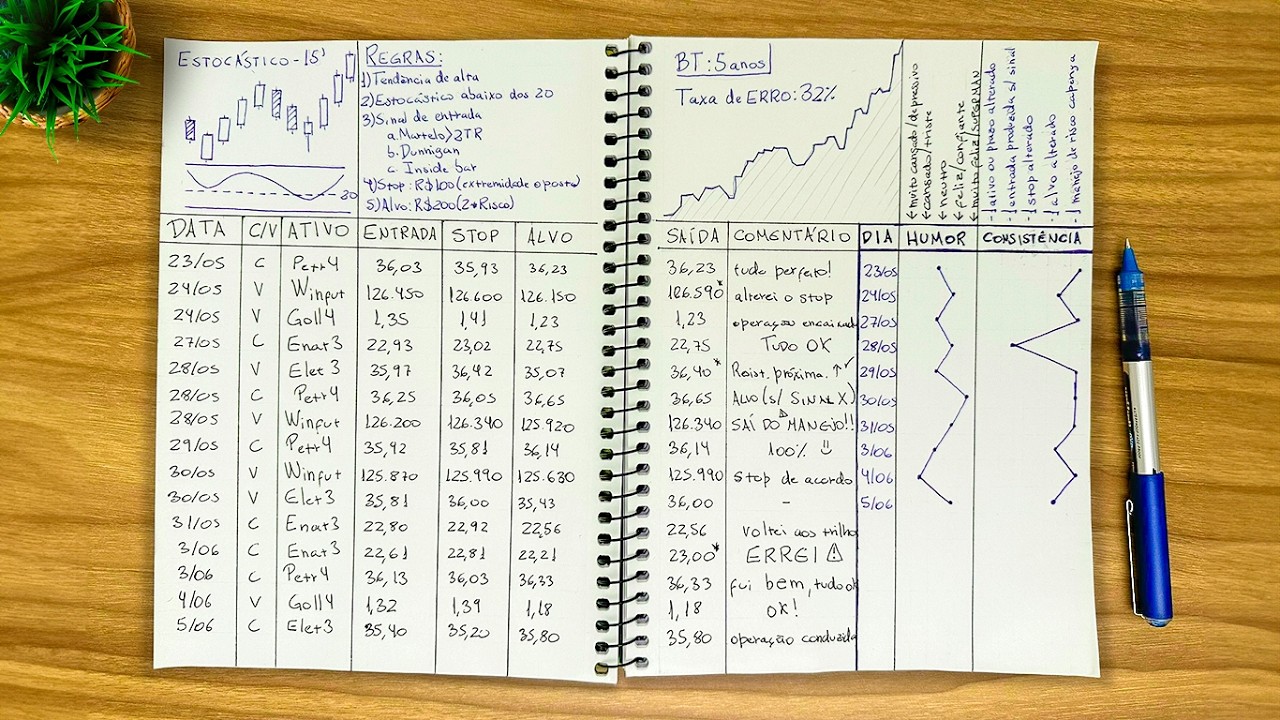 ESTOCÁSTICO - 15'
20
REGRAS:
1) Tendência de alta
2) Estocástico abaixo dos 20
3) Sinal de entrada
a. Martelo > 2TR
b. Dunnigan
c. Inside bar
4) Stop: R$100 (extremidade oposta)
5) Alvo: R$200 (2*Risco)
BT: 5 anos
Taxa de ERRO: 32%
← muito cansado/depressivo
← cansado/triste
← neutro
← feliz/confiante
← muito feliz/
- ativo ou prazo alterado
- entrada precoce s/ sinal
- stop alterado
- alvo alterado
- manejo de risco
DATA C/V ATIVO ENTRADA STOP ALVO SAÍDA COMENTÁRIO DIA HUMOR CONSISTÊNCIA
23/05 C Petr4 36,03 35,93 36,23 36,23 tudo perfeito! 23/05
24/05 V Winfut 126.450 126.600 126.150 126.590* alterei o stop 24/05
24/05 V Goll4 1,35 1,41 1,23 1,23 operação 27/05
27/05 C Enat3 22,93 23,02 22,75 22,75 TUDO OK 28/05
28/05 V Elet3 35,97 36,42 35,07 36,40* Resist. próxima. ↑ 29/05
28/05 C Petr4 36,25 36,05 36,65 36,65 ALVO (s/ SINAL X) 30/05
28/05 V Winfut 126.200 126.340 125.920 126.340 SAÍ DO MANEJO!! 31/05
29/05 C Petr4 35,92 35,81 36,14 36,14 100% 3/06
30/05 V Winfut 125.870 125.990 125.630 125.990 stop de acordo 4/06
30/05 V Elet3 35,81 36,00 35,43 36,00 - 5/06
31/05 C Enat3 22,80 22,92 22,56 22,56 voltei aos trilho
3/06 C Enat3 22,61 22,81 22,21 23,00* ERREI
3/06 C Petr4 36,13 36,03 36,33 36,33 fui bem, tudo ok
4/06 V Goll4 1,32 1,39 1,18 1,18 OK!
5/06 C Elet3 35,40 35,20 35,80 35,80 operação conduzida